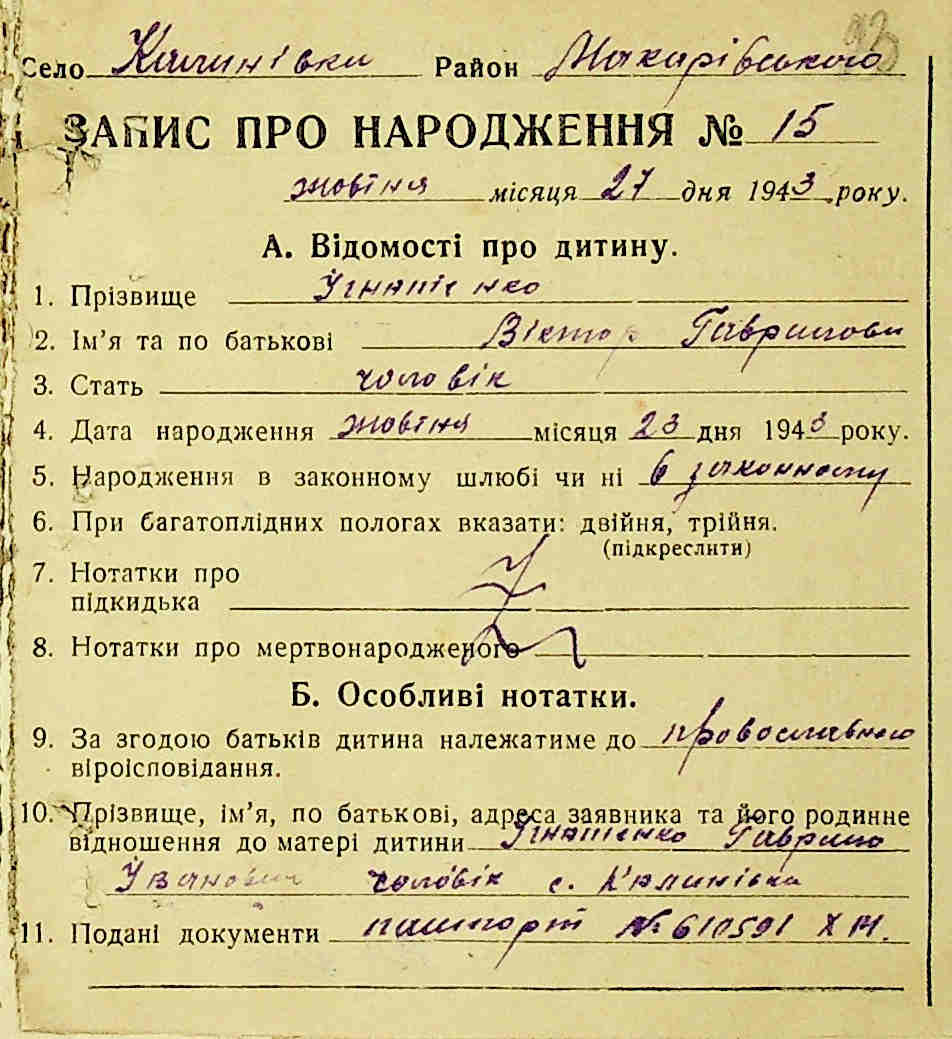 93
Село Калинівка Район Макарівського
ЗАПИС ПРО НАРОДЖЕННЯ № 15
жовтня місяця 27 дня 1943 року.
А. Відомості про дитину.
1. Прізвище Ігнатієнко
2. Ім’я та по батькові Віктор Гаврилови
3. Стать чоловік
4. Дата народження жовтня місяця 23 дня 1943 року.
5. Народження в законному шлюбі чи ні в законному
6. При багатоплідних пологах вказати: двійня, трійня.
(підкреслити)
7. Нотатки про
підкидька
8. Нотатки про мертвонародженого
Б. Особливі нотатки.
9. За згодою батьків дитина належатиме до православного
віроісповідання.
10. Прізвище, ім’я, по батькові, адреса заявника та його родинне
відношення до матері дитини Ігнатенко Гаврило
Іванович чоловік с. Калинівка
11. Подані документи пашпорт № 610591